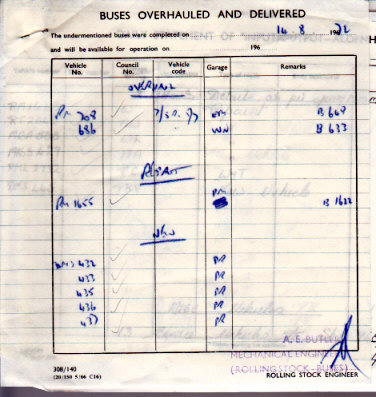 BUSES OVERHAULED AND DELIVERED
The undermentioned buses were completed on 14 . 8 1972
and will be available for operation on 196
Vehicle No. Council No. Vehicle code Garage Remarks
OVERHAUL
RM 708 B 669
686 WN B 633
REPAINT
RM 1655 B 1622
NEW
DMS 432 PR
433 PR
435 PR
436 PR
437 PR
A. E. BUTLER
MECHANICAL ENGINEER
(ROLLING STOCK - BUSES)
308/140
(20/150 5/66 C16)
ROLLING STOCK ENGINEER